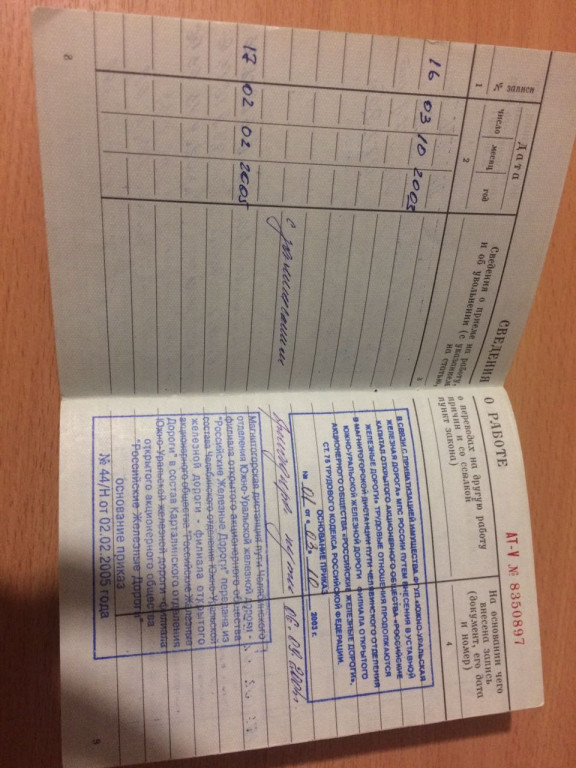 СВЕДЕНИЯ
№ записи
Дата
число
месяц
год
Сведения о приеме на работу,
и об увольнении (с указанием
на статью,
1
2
16 03 10 2003
17 02 02 2005
8
АТ-V № 8350897
О РАБОТЕ
о переводах на другую работу
причин и со ссылкой
пункт закона)
На основании чего
внесена запись
(документ, его дата
и номер)
4
В СВЯЗИ С ПРИВАТИЗАЦИЕЙ ИМУЩЕСТВА ФГУП «ЮЖНО-УРАЛЬСКАЯ
ЖЕЛЕЗНАЯ ДОРОГА» МПС РОССИИ ПУТЕМ ВНЕСЕНИЯ В УСТАВНОЙ
КАПИТАЛ ОТКРЫТОГО АКЦИОНЕРНОГО ОБЩЕСТВА «РОССИЙСКИЕ
ЖЕЛЕЗНЫЕ ДОРОГИ» ТРУДОВЫЕ ОТНОШЕНИЯ ПРОДОЛЖАЮТСЯ
В МАГНИТОГОРСКОЙ ДИСТАНЦИИ ПУТИ ЧЕЛЯБИНСКОГО ОТДЕЛЕНИЯ
ЮЖНО-УРАЛЬСКОЙ ЖЕЛЕЗНОЙ ДОРОГИ - ФИЛИАЛА ОТКРЫТОГО
АКЦИОНЕРНОГО ОБЩЕСТВА «РОССИЙСКИЕ ЖЕЛЕЗНЫЕ ДОРОГИ».
СТ. 75 ТРУДОВОГО КОДЕКСА РОССИЙСКОЙ ФЕДЕРАЦИИ.
ОСНОВАНИЕ ПРИКАЗ
№ 01 от «03» 10 2003 г.
пути
Магнитогорская дистанция пути Челябинского
отделения Южно-Уральской железной дороги -
филиала открытого акционерного общества
"Российские Железные Дороги" передана из
состава Челябинского отделения Южно-Уральской
железной дороги - филиала открытого
акционерного общества "Российские Железные
Дороги" в состав Карталинского отделения
Южно-Уральской железной дороги - филиала
открытого акционерного общества
"Российские Железные Дороги"
основание приказ
№ 44/Н от 02.02.2005 года
9